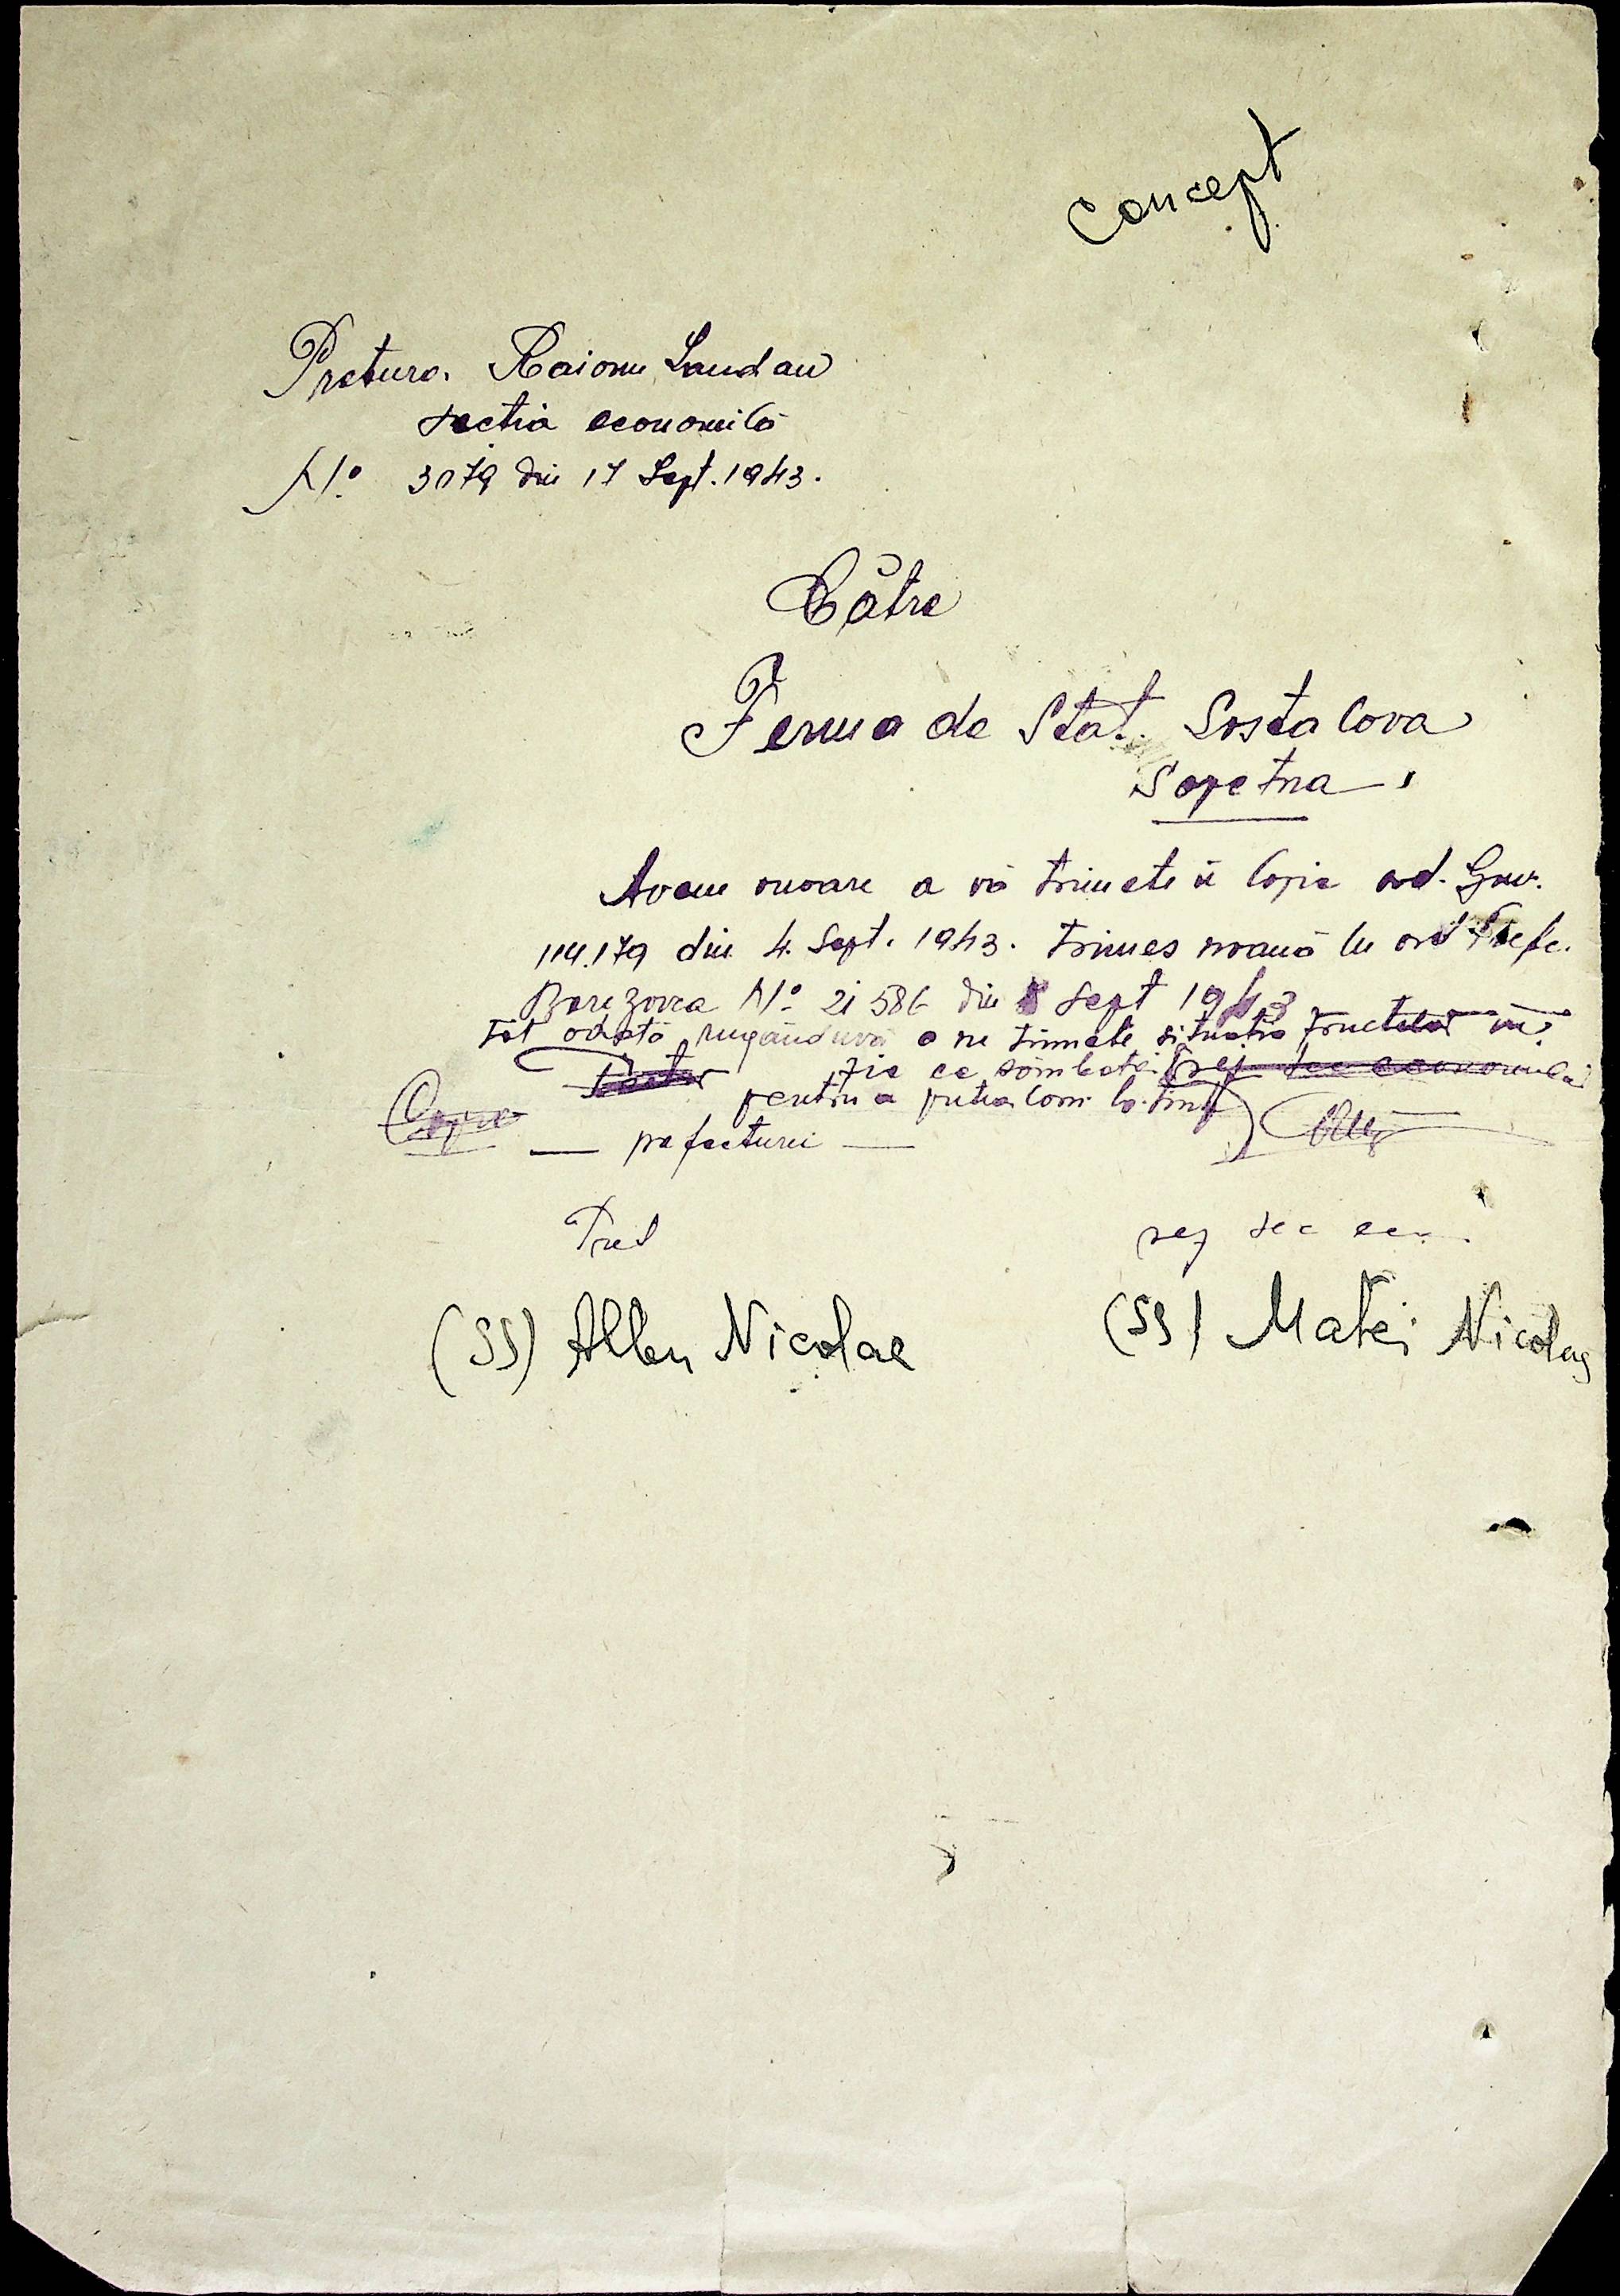 Concept
Pretura Raionu Landau
sectia economică
No. 3079 din 17 Sept. 1943.
Către
Ferma de Stat. Sostacova
Sopetna
Avem onoare a vă trimete în copie ord. Guv.
114.179 din 4. Sept. 1943. trimes nouă cu ord Prefc.
Berezovca No. 21586 din 8 Sept 1943
tot odată rugânduvă a ne trimete situatia fructelor în
zie ce sâmbătă
pentru a putea com. la timp
prefecturii
Copie
Pret
sef sec ec.
(SS) Albu Nicolae
(SS) Matei Nicolae